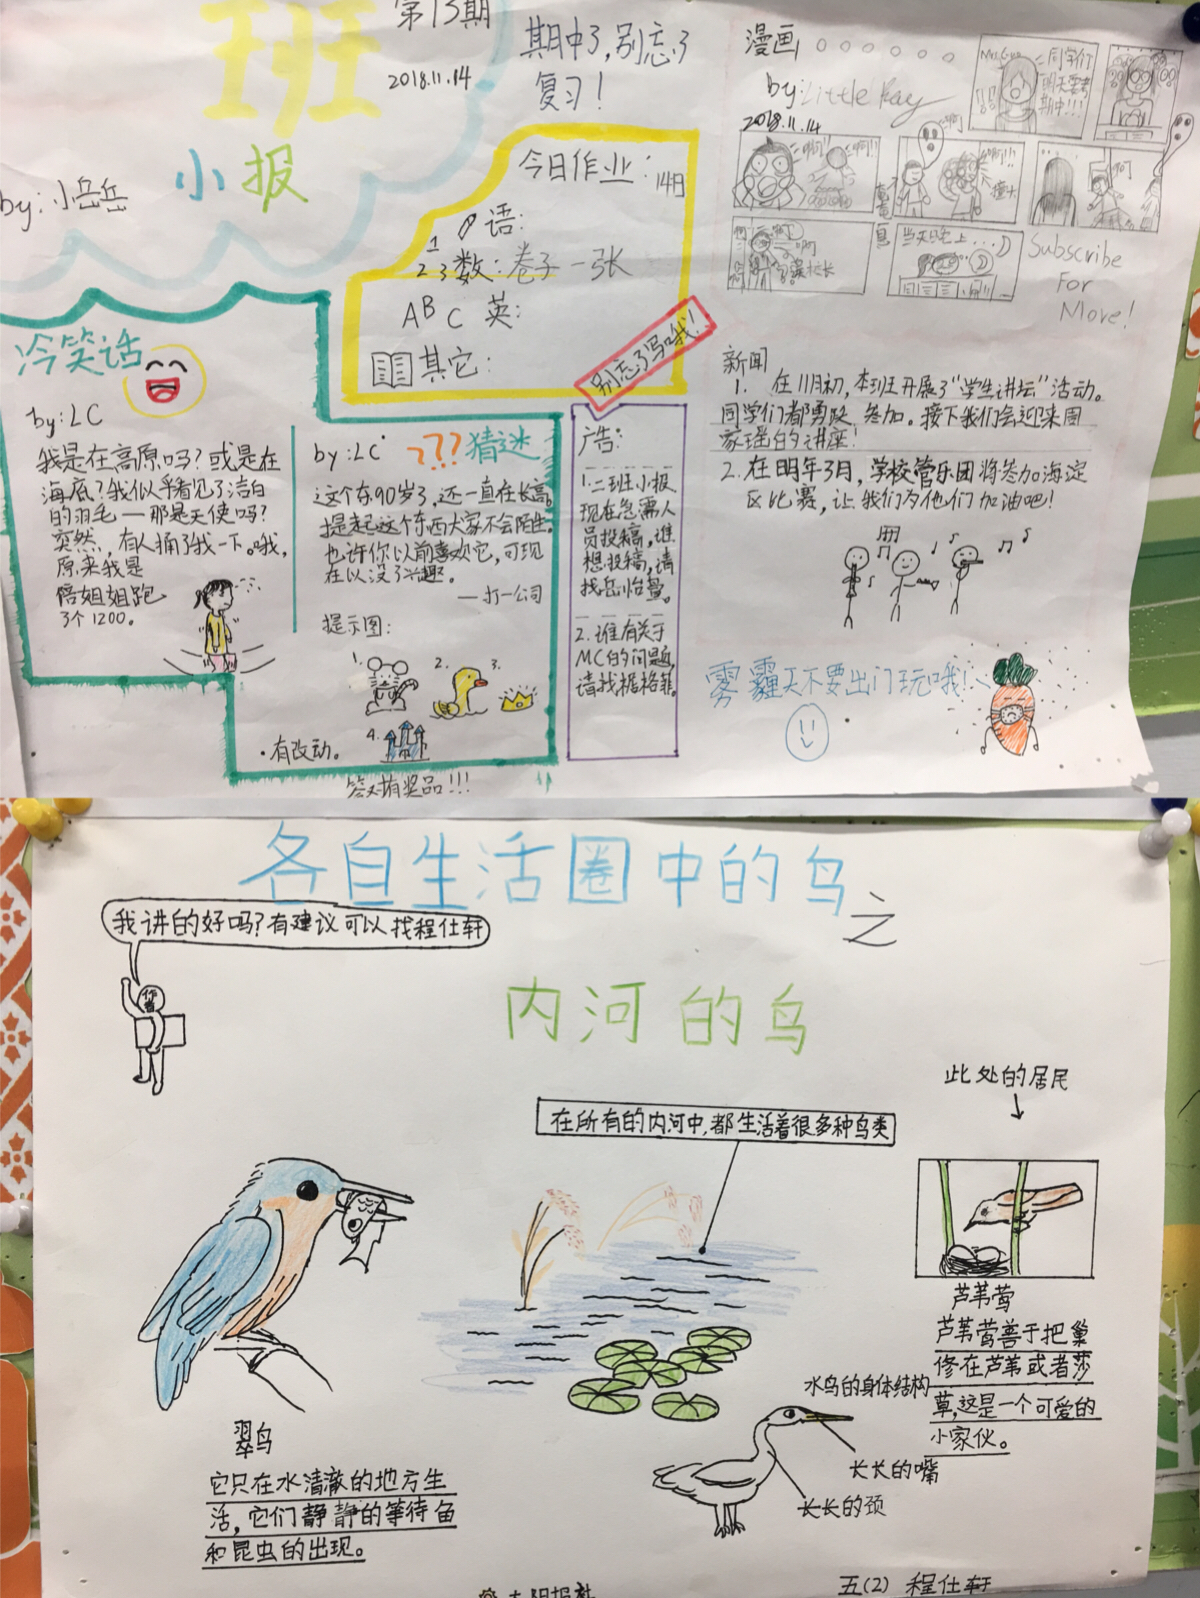 第13期
2018.11.14
班
小报
by:小岳岳
期中了,别忘了
复习!
今日作业:
14日
语:
1
2 3 数:卷子一张
A B C 英:
其它:
别忘了写哦!
漫画
by:Little Ray
2018.11.14
同学们
明天要考
期中!!!
啊!
啊!!
啊
啊!!!
撞大
啊
当天晚上...
Subscribe
For
More!
冷笑话
by:LC
我是在高原吗?或是在
海底?我似乎看见了洁白
的羽毛—那是天使吗?
突然,有人捅了我一下。哦,
原来我是
陪姐姐跑
3个1200。
by:LC
???猜迷
这个东90岁了,还一直在长高。
提起这个东西大家不会陌生。
也许你以前喜欢它,可现
在以没了兴趣。
—打一公司
提示图:
1.
2.
3.
4.
·有改动。
答对有奖品!!!
广告:
1.二班小报
现在急需人
员投稿,谁
想投稿,请
找岳怡萱。
2.谁有关于
MC的问题,
请找
新闻
1. 在11月初,本班开展了“学生讲坛”活动。
同学们都勇跃参加。接下我们会迎来周
家瑶的讲座!
2.在明年3月,学校管乐团将参加海淀
区比赛,让我们为他们加油吧!
雾霾天不要出门玩哦!
各自生活圈中的鸟
之
我讲的好吗?有建议可以找程仕轩
作者
内河的鸟
此处的居民
在所有的内河中,都生活着很多种鸟类
芦苇莺
芦苇莺善于把巢
修在芦苇或者莎
草,这是一个可爱的
小家伙。
水鸟的身体结构
长长的嘴
长长的颈
翠鸟
它只在水清澈的地方生
活,它们静静的等待鱼
和昆虫的出现。
五(2) 程仕轩